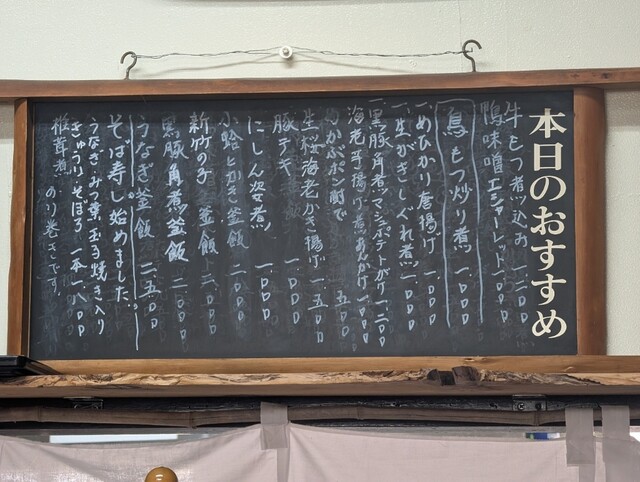 本日のおすすめ
牛もつ煮込み 一、二〇〇
鴨味噌エシャーレット 一、〇〇〇
鳥もつ炒り煮 一、〇〇〇
一、めひかり唐揚げ 一、〇〇〇
一、生がきしぐれ煮 一、〇〇〇
一、黒豚角煮マッシュポテトがけ 一、二〇〇
海老芋揚げ煮あんかけ 一、〇〇〇
めかぶポン酢で 五〇〇
生桜海老かき揚げ 一、五〇〇
豚テキ 一、〇〇〇
にしん姿煮 一、〇〇〇
小蛤とかき釜飯 二、〇〇〇
新竹の子釜飯 二、〇〇〇
黒豚角煮釜飯 二、〇〇〇
うなぎ釜飯 二、五〇〇
そば寿し始めました。
うなぎ・みつ葉・玉子焼き入り
きゅうり・そぼろ 一本 一、八〇〇
椎茸煮 のり巻きです。